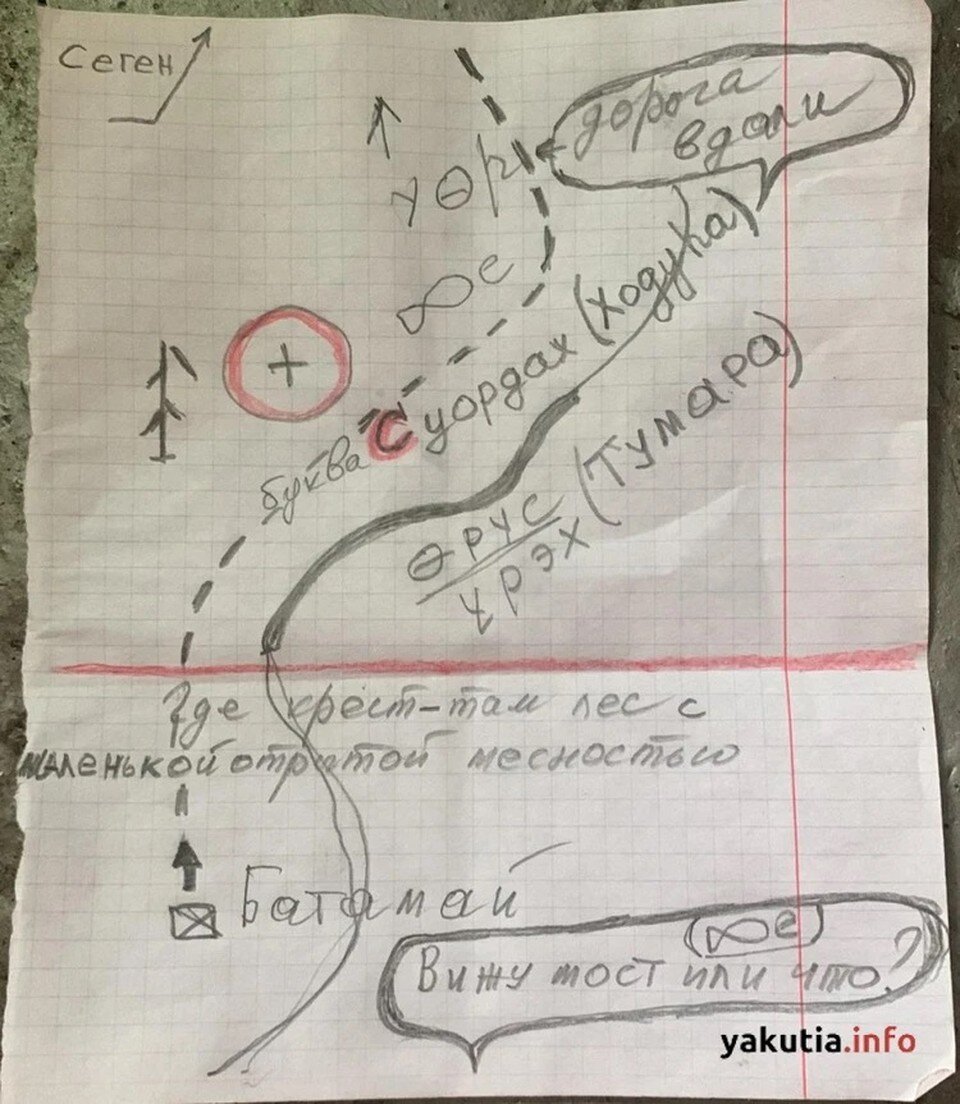 Сеген
дорога
вдали
үөр
ꝏе
+
буква С уордах (ходука)
өрүс
үрэх (Тумара)
Где крест-там лес с
маленькой открытой месностью
Батамай
(ꝏе)
Вижу мост или что?
yakutia.info